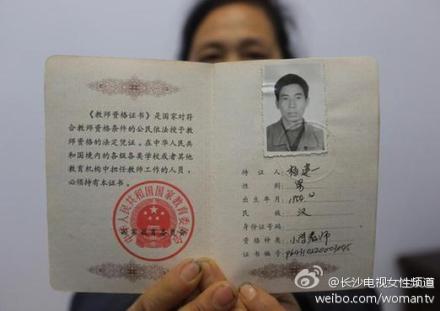 《教师资格证书》是国家对符
合教师资格条件的公民依法授予教
师资格的法定凭证。在中华人民共
和国境内的各级各类学校或者其他
教育机构中担任教师工作的人员，
必须持有本证书。
中华人民共和国国家教育委员会
国家教育委员会
持证人 杨建一
性别 男
出生年月
民族 汉
身份证号码
资格种类 小学教师
证书编号
@长沙电视女性频道
weibo.com/womantv